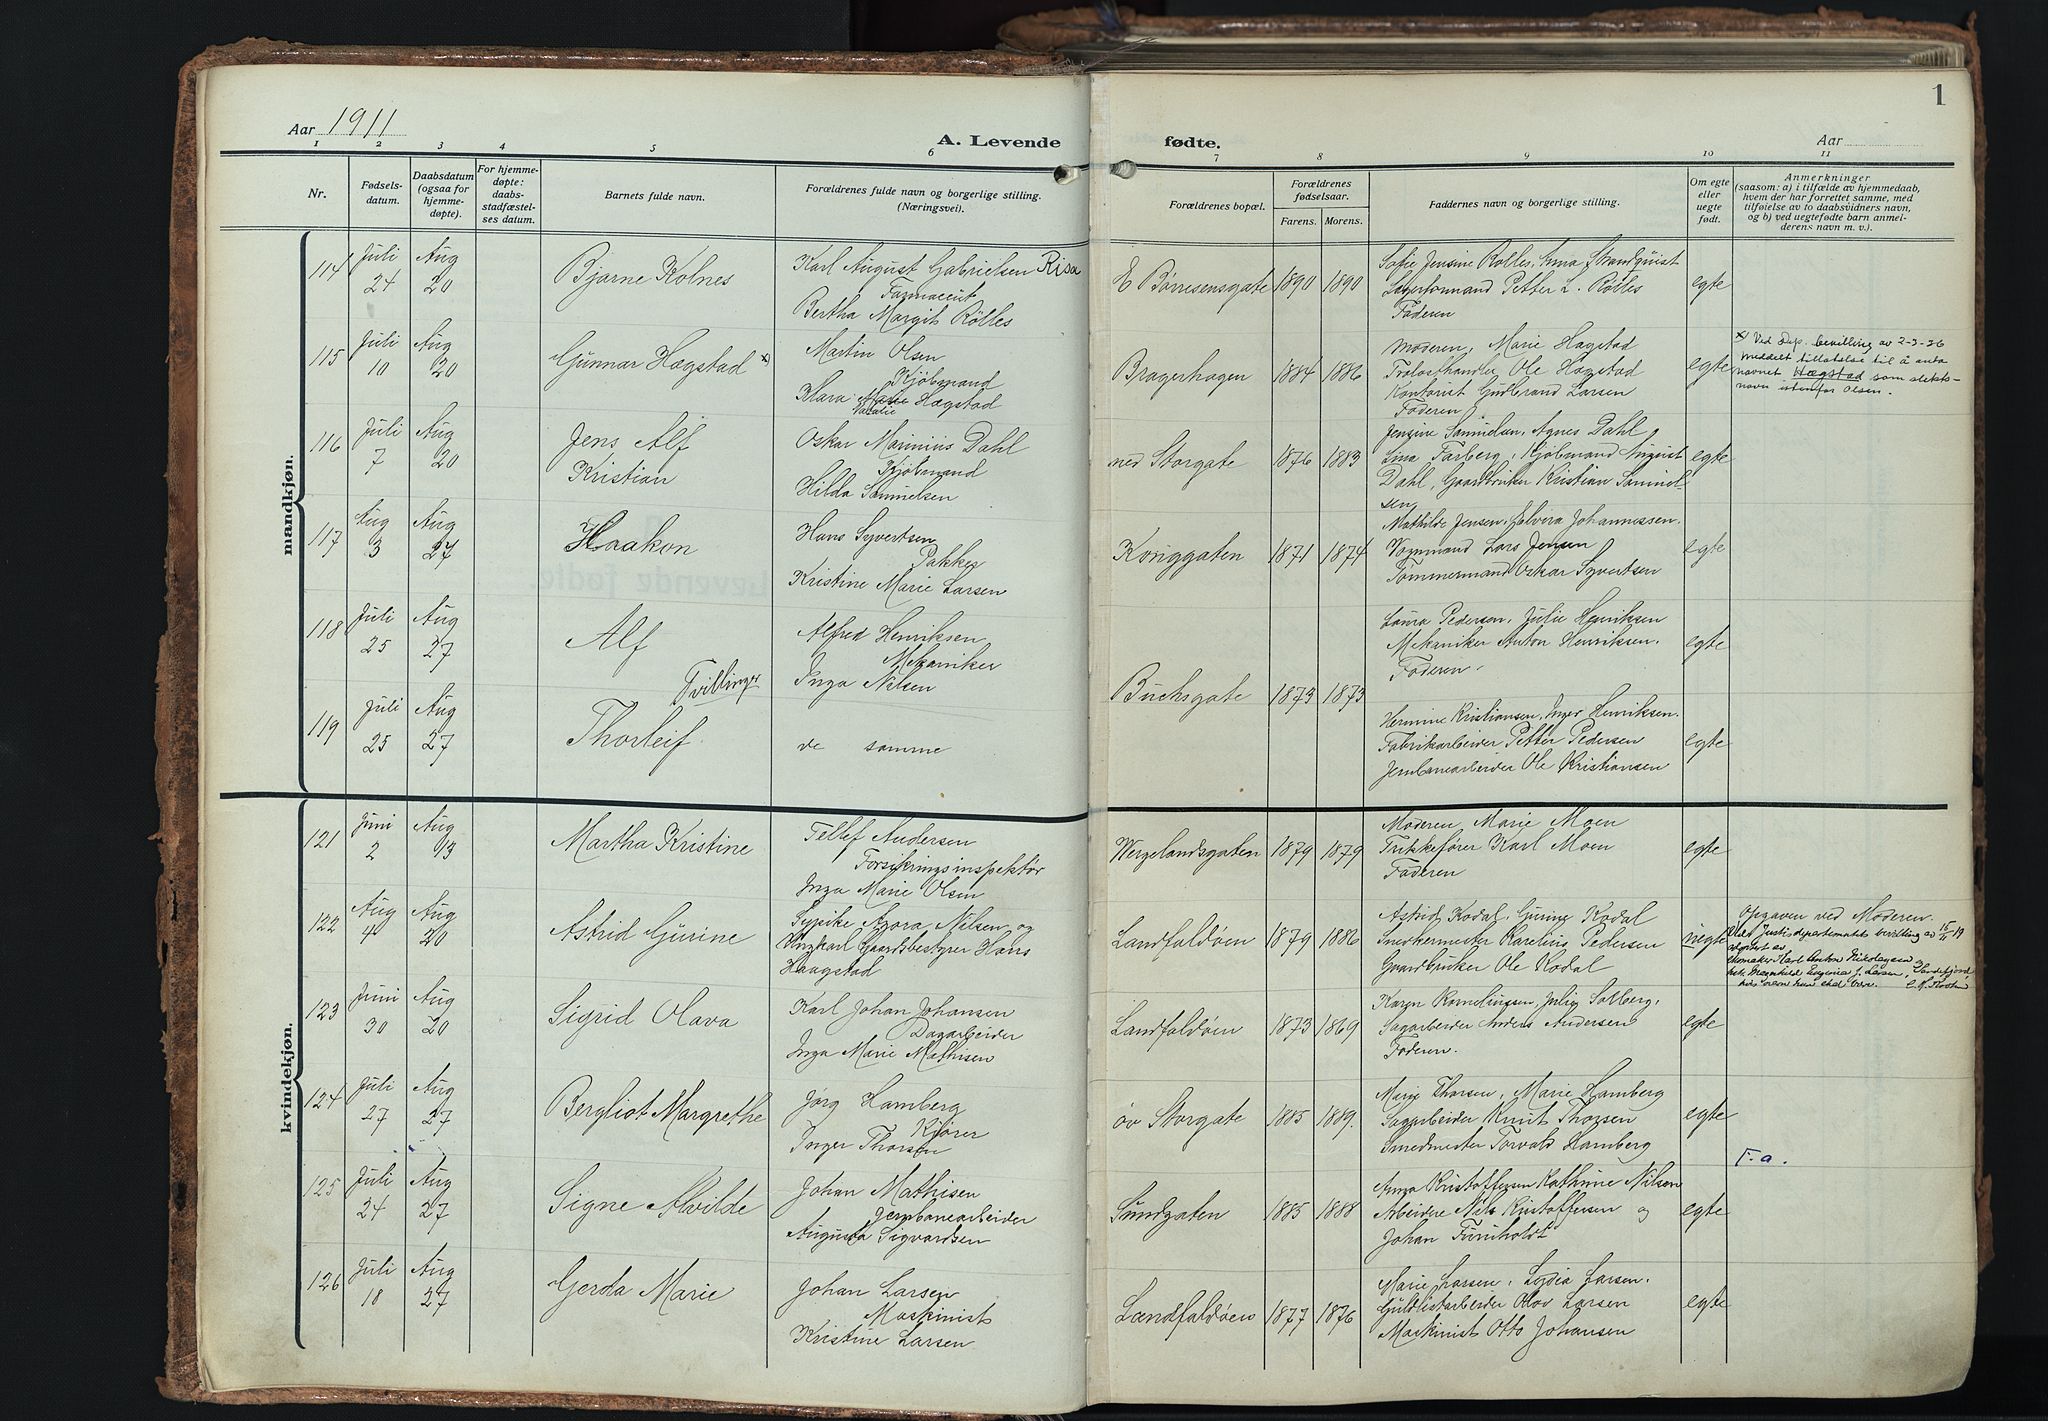 1
Aar 1911
A. Levende fødte.
Aar
1 2 3 4 5 6 7 8 9 10 11
Nr.
Fødsels-
datum.
Daabsdatum
(ogsaa for
hjemme-
døpte).
For hjemme-
døpte:
daabs-
stadfæstel-
ses datum.
Barnets fulde navn.
Forældrenes fulde navn og borgerlige stilling.
(Næringsvei).
Forældrenes bopæl.
Forældrenes
fødselsaar.
Farens. Morens.
Faddernes navn og borgerlige stilling.
Om egte
eller
uegte
født.
Anmerkninger
(saasom: a) i tilfælde av hjemmedaab,
hvem der har forrettet samme, med
tilføielse av to daabsvidners navn,
og b) ved uegtefødte barn anmel-
derens navn m. v.).
mandkjøn.
114
Juli
24
Aug
20
Bjarne Kolnes
Karl August Gabrielsen Risa
Farmaceut
Bertha Margit Rölles
E Börresensgate
1890 1890
Sofie Jensine Rölles, Erna Strandquist
Lagerformand Petter L. Rölles
Faderen
egte
115
Juli
10
Aug
20
Gunnar Hægstad x)
Martin Olsen
Kjöbmand
Klara Marie Hægstad
Natalie
Bragerhagen
1884 1886
Moderen, Marie Hagstad
Trælasthandler Ole Hagstad
Kontorist Gudbrand Larsen
Faderen
egte
x) Ved Dep. bevilling av 2-3-26
meddelt tillatelse til å anta
navnet Hægstad som slekts-
navn istenfor Olsen.
116
Juli
7
Aug
20
Jens Alf
Kristian
Oskar Marinius Dahl
Kjöbmand
Hilda Samuelsen
ned Storgate
1876 1883
Jensine Samuelsen, Agnes Dahl,
Lina Farberg, Kjöbmand August
Dahl, Gaardbruker Kristian Samuel-
sen
egte
117
Aug
3
Aug
27
Haakon
Hans Syvertsen
Pakker
Kristine Marie Larsen
Konggaten
1871 1874
Mathilde Jensen, Elvira Johannessen.
Vognmand Lars Jensen
Tömmermand Oskar Syvertsen
egte
118
Juli
25
Aug
27
Alf
Tvillinger
Alfred Henriksen
Mekaniker
Inga Nilsen
Buchsgate
1873 1873
Laura Pedersen, Julie Henriksen
Mekaniker Anton Henriksen.
Faderen.
egte
119
Juli
25
Aug
27
Thorleif.
de samme
Hermine Kristiansen, Inger Henriksen.
Fabrikarbeider Petter Pedersen
Jernbanearbeider Ole Kristiansen
egte
kvindekjøn.
121
Juni
2
Aug
13
Martha Kristine
Tellef Andersen
Forsikringsinspektör
Inga Marie Olsen
Wergelandsgaten
1879 1879
Moderen Marie Moen
Trikkefører Karl Moen
Faderen
egte
122
Aug
4
Aug
20
Astrid Gurine
Sypike Azora Nilsen, og
Ungkarl Gaardsbestyrer Hans
Haagstad
Landfaldöen
1879 1886
Astrid Kodal, Gurine Kodal
Snedkermester Karelius Pedersen
Gaardbruker Ole Kodal
uegte
Opgaven ved Moderen.
Ved Justisdepartementets bevilling av 15/11-19
adoptert av
skomaker Karl Anton Nikolaysen og
hstr. Magnhild Eugenia f. Larsen, Sandefjord,
123
Juni
30
Aug
20
Sigrid Olava
Karl Johan Johansen
Dagarbeider
Inga Marie Mathisen
Landfaldöen
1873 1869
Karen Korneliussen, Julie Solberg,
Sagarbeider Anders Andersen
Faderen.
egte
124
Juli
27
Aug
27
Bergliot Margrethe
Jörg Hamberg
Kjörer
Inger Thorsen
öv Storgate
1885 1889.
Marie Thorsen, Marie Hamberg
Sagarbeider Knut Thorsen
Smedmester Torvald Hamberg
egte
F.a.
125
Juli
24
Aug
27
Signe Alvilde
Johan Mathisen
Jernbanearbeider
Augusta Sigvardsen
Sundgaten
1885 1888
Anna Kristoffersen Kathrine Nilsen
Arbeidere Nils Kristoffersen og
Johan Furuholdt
egte
126
Juli
18
Aug
27
Gerda Marie
Johan Larsen
Maskinist
Kristine Larsen
Landfaldöen
1877 1876
Marie Larsen, Lydia Larsen.
Guldlistarbeider Olav Larsen
Maskinist Otto Johansen
egte